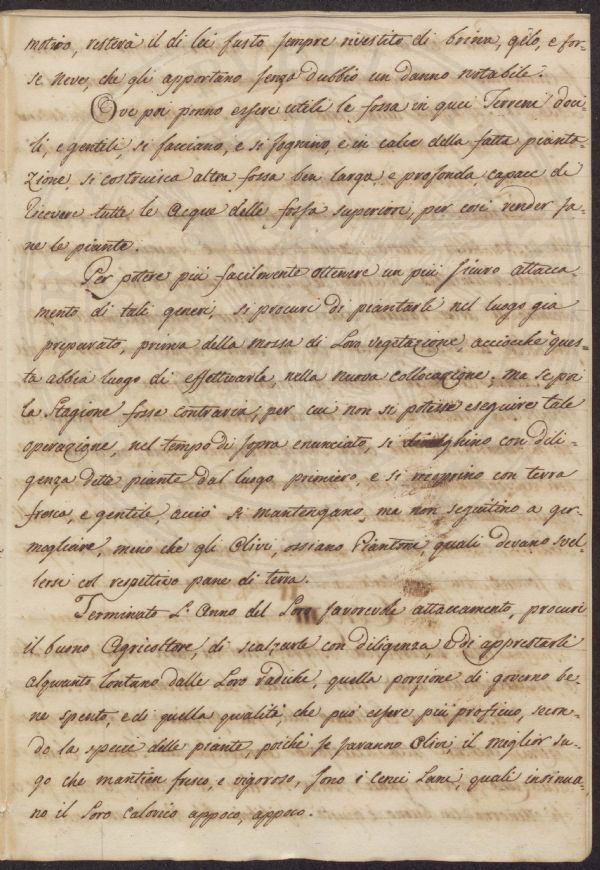 motivo, resterà il di lei fusto sempre rivestito di brina, gelo, e for-
se Neve, che gli apportano senza dubbio un danno notabile.
Ove poi ponno essere utili le fossa in quei Terreni doci-
li, e gentili, si facciano, e si fognino, e in calce della fatta pianta-
zione, si costruisca altra fossa ben larga, e profonda, capace di
ricevere tutte le Acque delle fossa superiori, per così render sa-
ne le piante.
Per potere più facilmente ottenere un più sicuro attacca-
mento di tali generi, si procuri di piantarli nel luogo già
preparato, prima della mossa di Loro vegetazione, acciocchè ques-
ta abbia luogo di effettuarla, nella nuova collocazione; ma se poi
la Stagione fosse contraria, per cui non si potesse eseguire tale
operazione, nel tempo di sopra enunciato, si con dili-
genza dette piante dal luogo primiero, e si con terra
fresca, e gentile, acciò si mantengano, ma non seguitino a ger-
mogliare, meno che gli Olivi, ossiano Piantoni, quali devano svel-
lersi col respettivo pane di terra.
Terminato L'Anno del Loro favorevole attaccamento, procuri
il buono Agricoltore, di scalzarle con diligenza, e di apprestarli
alquanto lontano dalle Loro radiche, quella porzione di governo be-
ne spento, e di quella qualità, che può essere più proficuo, secon-
do la specie delle piante, poichè se saranno Olivi, il miglior su-
go che mantien fresco, e vigoroso, sono i Cenci Lani, quali insinua-
no il Loro calorico appoco, appoco.